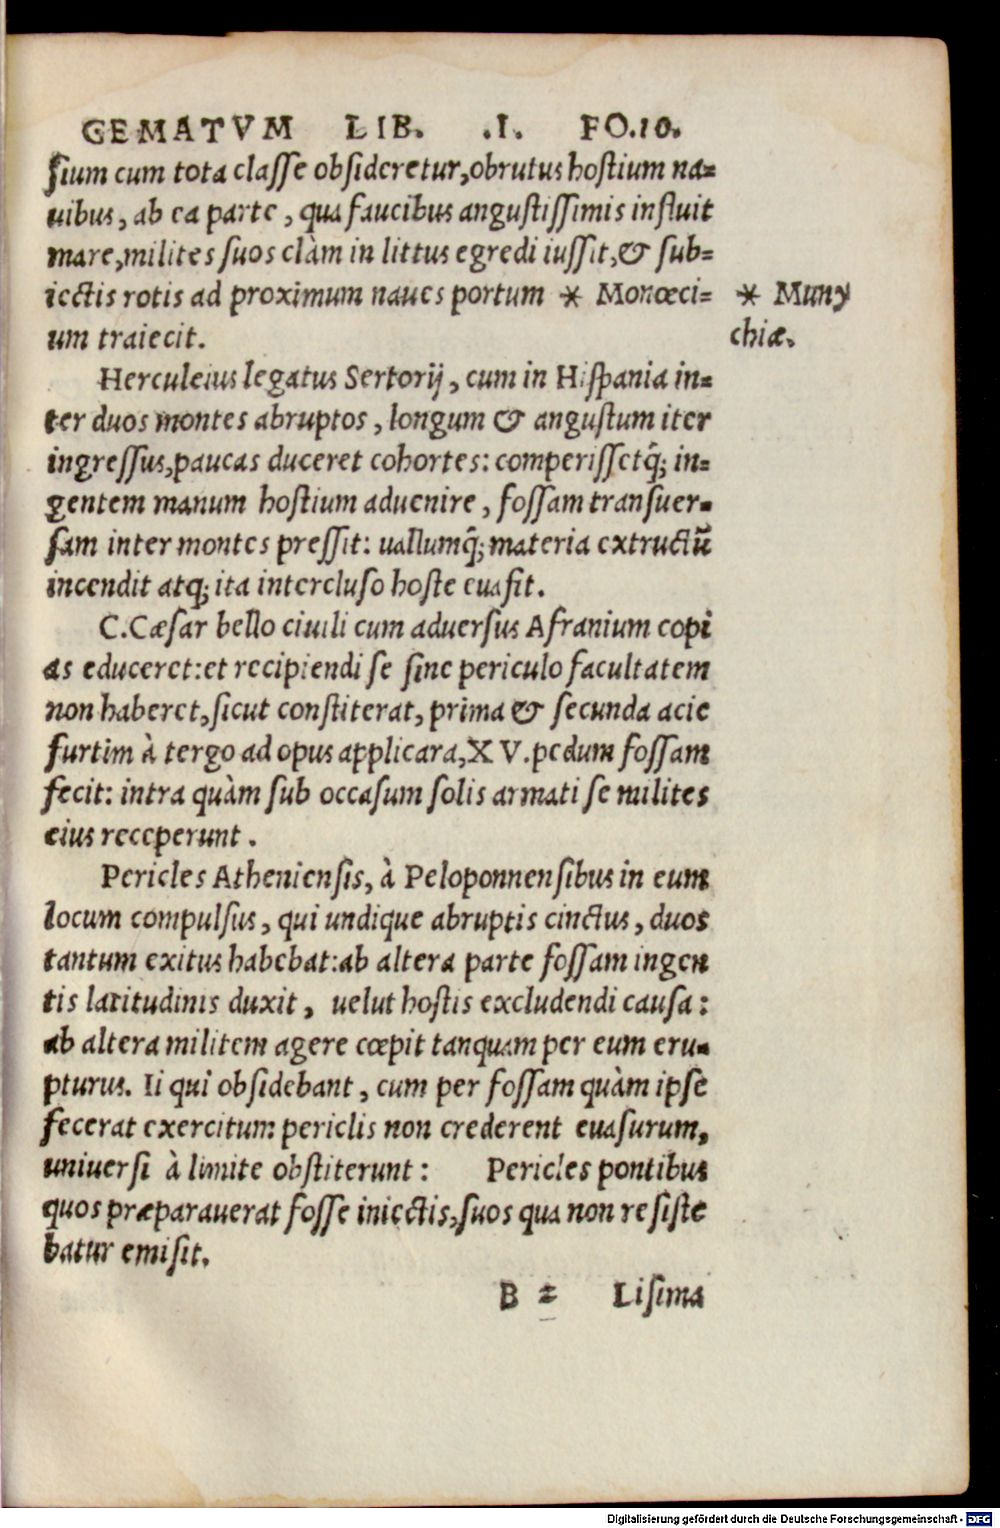 GEMATVM LIB. .I. FO.10.
ſium cum tota claſſe obſideretur,obrutus hoſtium na=
uibus, ab ea parte, qua faucibus anguſtiſſimis influit
mare,milites ſuos clàm in littus egredi iuſſit,& ſub=
iectis rotis ad proximum naues portum * Monœci=
* Muny
um traiecit.
chiæ.
Herculeius legatus Sertorij, cum in Hiſpania in=
ter duos montes abruptos, longum & anguſtum iter
ingreſſus,paucas duceret cohortes: comperiſſetq̃; in=
gentem manum hoſtium aduenire, foſſam tranſuer=
ſam inter montes preſſit: uallumq̃; materia extructũ
incendit atq; ita intercluſo hoſte euaſit.
C.Cæſar bello ciuili cum aduerſus Afranium copi
as educeret:et recipiendi ſe ſine periculo facultatem
non haberet,ſicut conſtiterat, prima & ſecunda acie
furtim à tergo ad opus applicara,XV.pedum foſſam
fecit: intra quàm ſub occaſum ſolis armati ſe milites
eius receperunt.
Pericles Athenienſis, à Peloponnenſibus in eum
locum compulſus, qui undique abruptis cinctus, duos
tantum exitus habebat:ab altera parte foſſam ingen
tis latitudinis duxit, uelut hoſtis excludendi cauſa:
ab altera militem agere cœpit tanquam per eum eru=
pturus. Ii qui obſidebant, cum per foſſam quàm ipſe
fecerat exercitum periclis non crederent euaſurum,
uniuerſi à limite obſtiterunt: Pericles pontibus
quos præparauerat foſſe iniectis,ſuos qua non reſiſte
batur emiſit.
B 2 Liſima
Digitalisierung gefördert durch die Deutsche Forschungsgemeinschaft - DFG